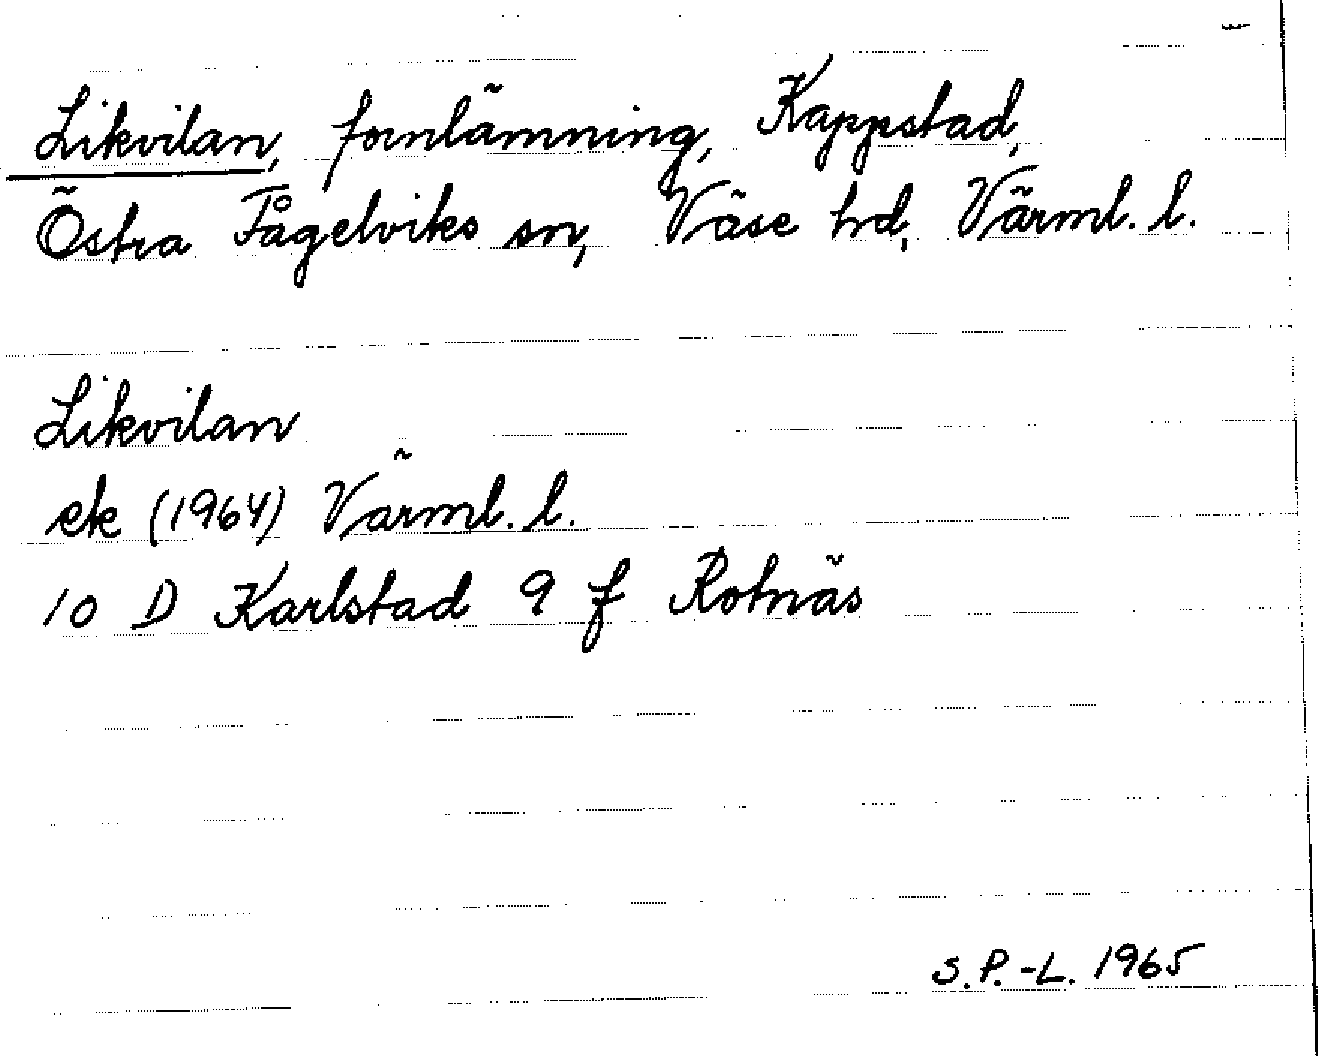 Likvilan, fornlämning, Kappstad,
Östra Fågelviks sn, Väse hd, Värml. l.
Likvilan
ek (1964) Värml. l.
10 D Karlstad 9 f Rotnäs
S.P.-L. 1965